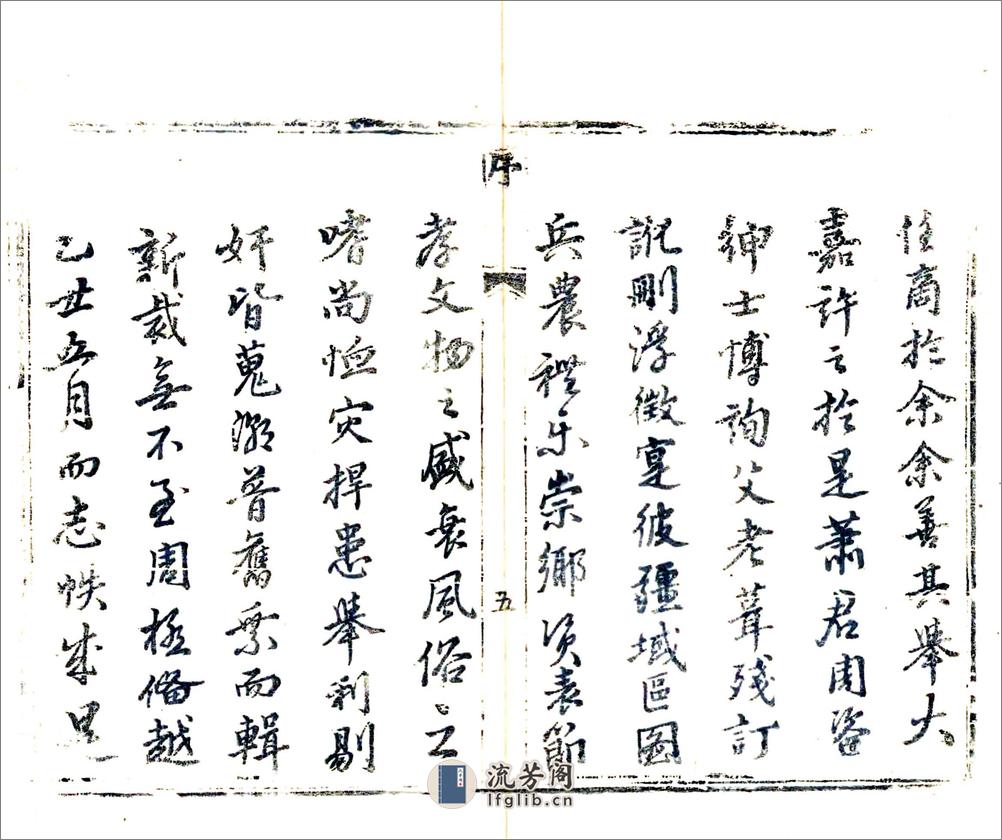 商於余余善其舉大
嘉許之於是蕭君周咨
紳士博詢父老葺殘訂
訛刪浮徵寔彼疆域區圖
兵農禮乐崇鄉資表節
序
五
孝文物之盛衰風俗之
嗜尚恤灾捍患舉利剔
奸皆蒐溯普舊乘而輯
新裁無不至周極備越
乙丑五月而志帙成
流芳阁
lfglib.cn